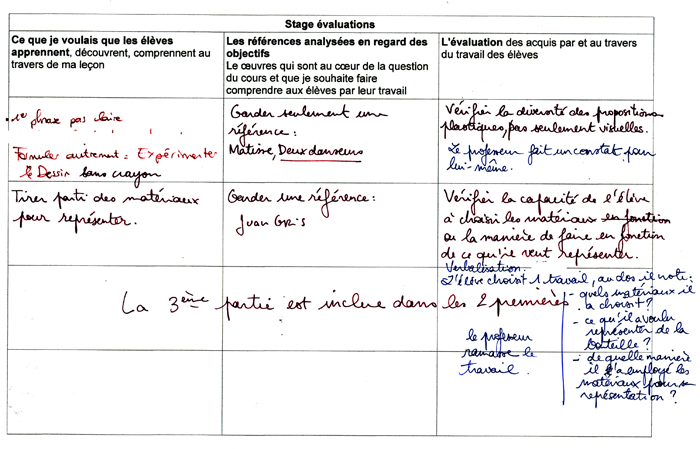 Stage évaluations
Ce que je voulais que les élèves
apprennent, découvrent, comprennent au
travers de ma leçon
Les références analysées en regard des
objectifs
Le œuvres qui sont au cœur de la question
du cours et que je souhaite faire
comprendre aux élèves par leur travail
L'évaluation des acquis par et au travers
du travail des élèves
1e phrase pas claire
Formuler autrement : Expérimenter
le Dessin sans crayon
Garder seulement une
référence :
Matisse, Deux danseurs
Vérifier la diversité des propositions
plastiques, pas seulement visuelles.
Le professeur fait un constat pour
lui-même.
Tirer parti des matériaux
pour représenter.
Garder une référence :
Juan Gris
Vérifier la capacité de l'élève
à choisir les matériaux en fonction
ou la manière de faire en fonction
de ce qu'il veut représenter.
Verbalisation.
L'élève choisit 1 travail, au dos il note :
La 3ème partie est inclue dans les 2 premières
le professeur
ramasse le
travail.
- quels matériaux il
a choisit ?
- ce qu'il a voulu
représenter de la
bataille ?
- de quelle manière
il a employé les
matériaux pour sa
représentation ?